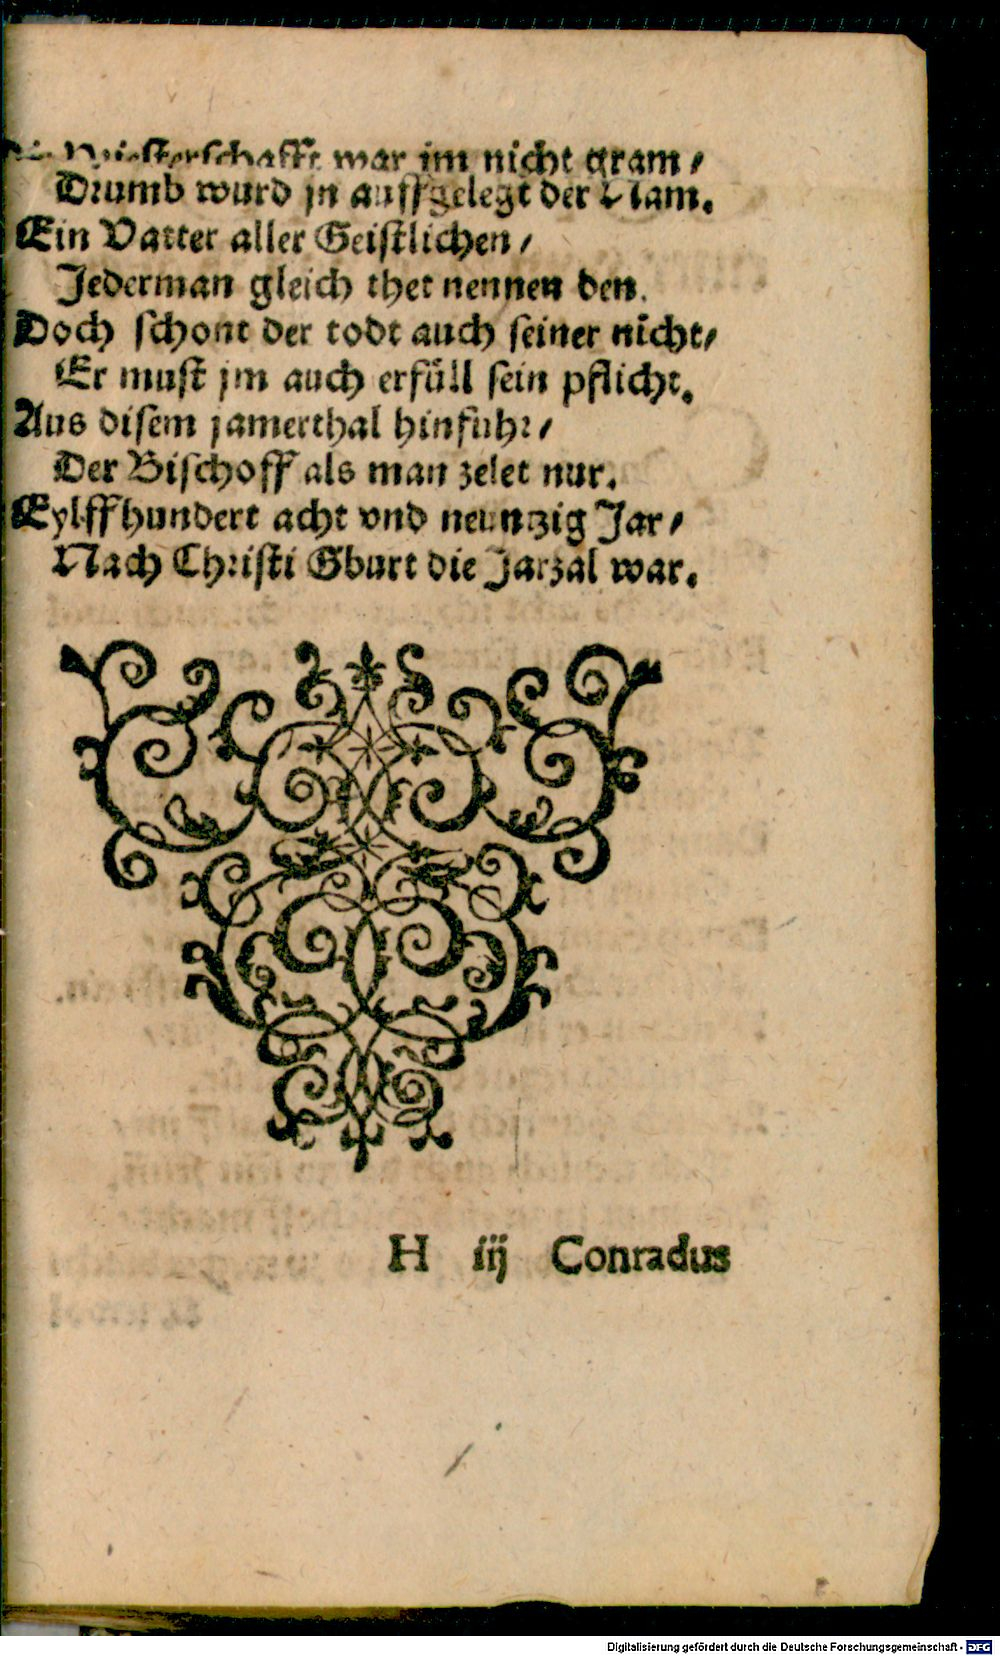 Die Priesterschafft war im nicht gram /
Drumb wurd jn auffgelegt der Nam.
Ein Vatter aller Geistlichen /
Jederman gleich thet nennen den.
Doch schont der todt auch seiner nicht /
Er must jm auch erfüll sein pflicht.
Aus disem jamerthal hinfuhr /
Der Bischoff als man zelet nur.
Eylffhundert acht vnd neuntzig Jar /
Nach Christi Gburt die Jarzal war.
H iij Conradus
Digitalisierung gefördert durch die Deutsche Forschungsgemeinschaft - DFG